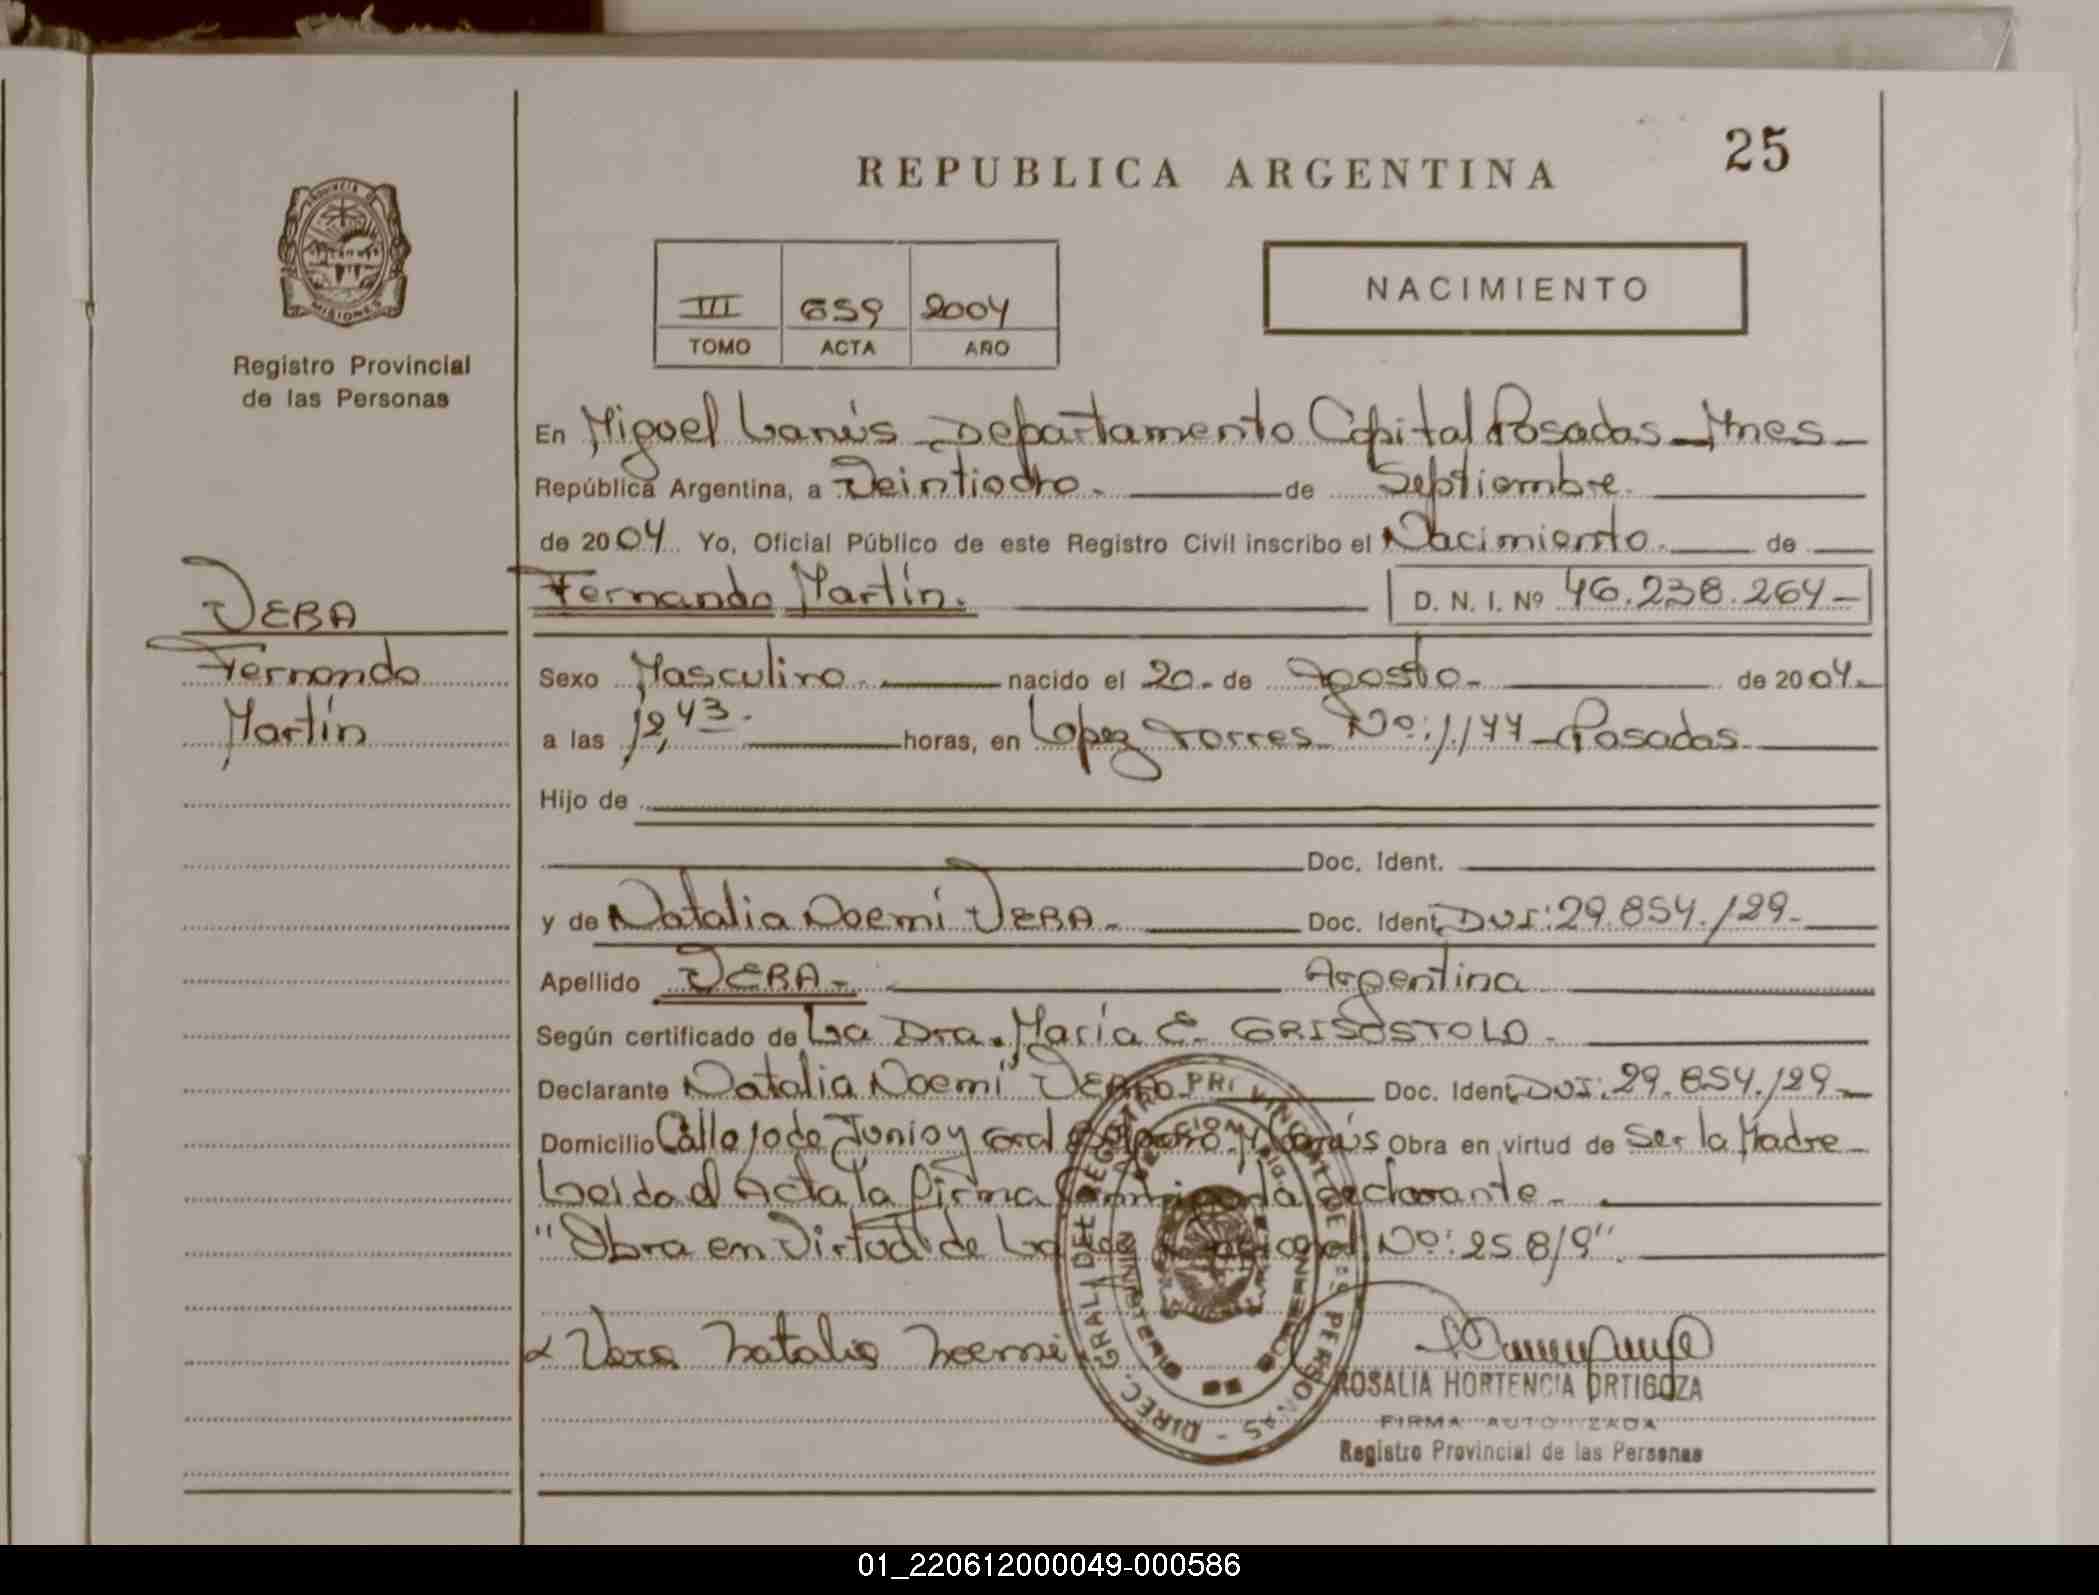 25
REPUBLICA ARGENTINA
PROVINCIA DE
MISIONES
Registro Provincial
de las Personas
III 659 2004
TOMO ACTA AÑO
NACIMIENTO
En Miguel Lanús - Departamento Capital Posadas - Mnes -
República Argentina, a Veintiocho. de Septiembre.
de 2004. Yo, Oficial Público de este Registro Civil inscribo el Nacimiento. de
VERA
Fernando
Martín
Fernando Martín. D. N. I. Nº 46.238.264-
Sexo Masculino. nacido el 20 - de Agosto - de 2004.-
a las 12,43. horas, en Lopez Torres - Nº: 1.177 - Posadas
Hijo de
Doc. Ident.
y de Natalia Noemí VERA - Doc. Ident. DNI: 29.854.129-
Apellido VERA - Argentina
Según certificado de La Dra. María E. GRISOSTOLO -
Declarante Natalia Noemí VERA - Doc. Ident. DNI: 29.854.129-
Domicilio Calle 10 de Junio y M. Lanús Obra en virtud de Ser la Madre -
Leida el Acta la firma la declarante -
"Obra en Virtud de La Ley Nº: 25.819".
Vera Natalia Noemi
DIREC. GRAL. DEL REGISTRO PROVINCIAL DE LAS PERSONAS
ROSALIA HORTENCIA ORTIGOZA
FIRMA AUTORIZADA
Registro Provincial de las Personas
01_220612000049-000586